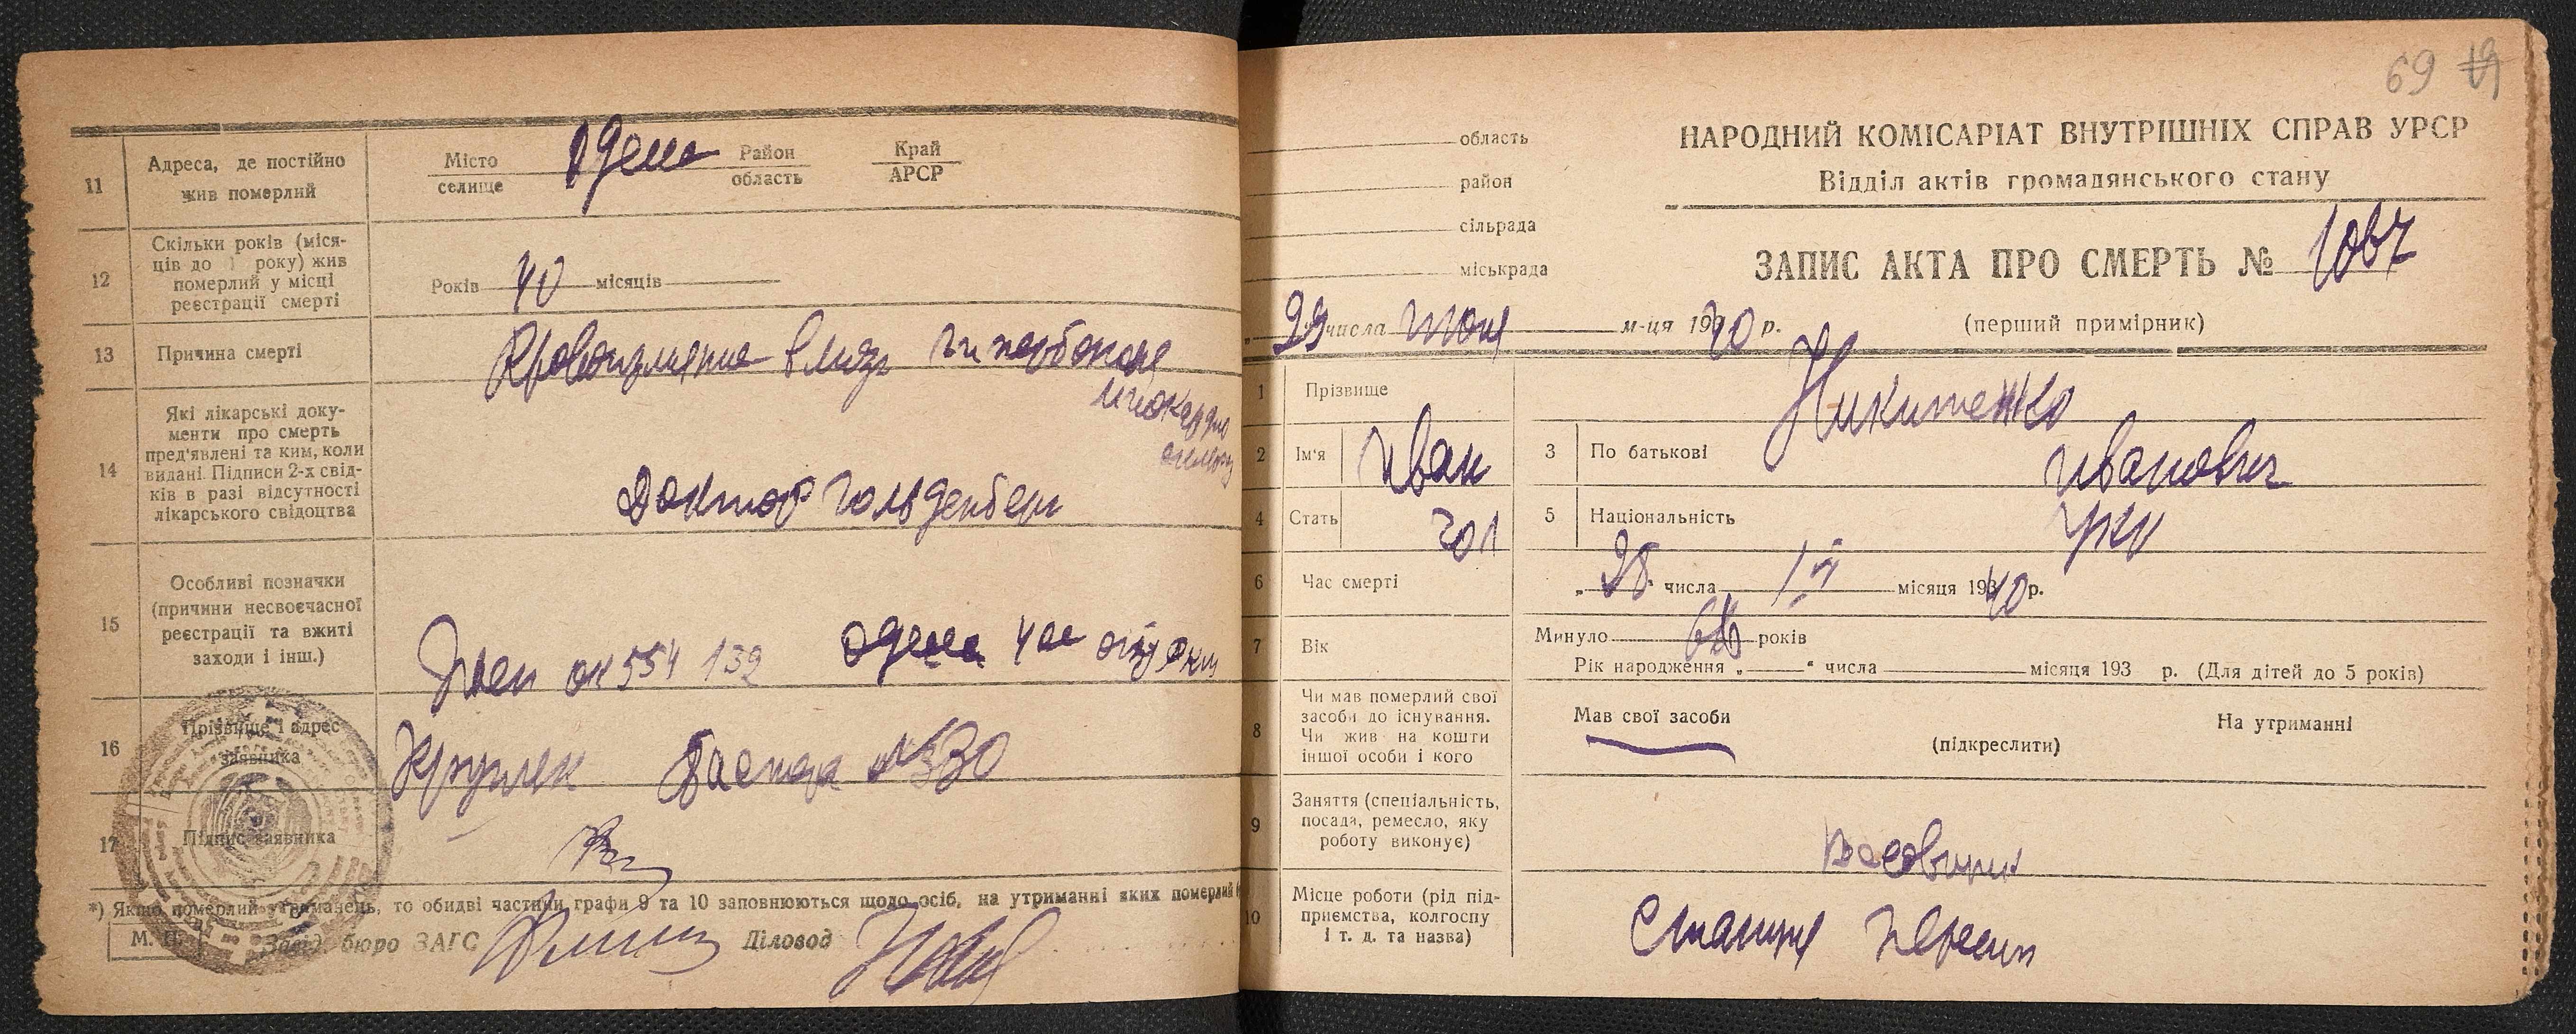 11
Адреса, де постійно
жив померлий
Місто
селище
Одесса
Район
область
Край
АРСР
12
Скільки років (міся-
ців до 1 року) жив
померлий у місці
реєстрації смерті
Років 40 місяців
13
Причина смерті
Кровоизлияние в мозг
миокардио
14
Які лікарські доку-
менти про смерть
пред'явлені та ким, коли
видані. Підписи 2-х свід-
ків в разі відсутності
лікарського свідоцтва
Доктор Гольденберг
15
Особливі позначки
(причини несвоєчасної
реєстрації та вжиті
заходи і інш.)
554 132 Одесса 4
16
Прізвище і адрес
заявника
№ 30
17
Підпис заявника
*) Якщо померлий утриманець, то обидві частини графи 9 та 10 заповнюються щодо осіб, на утриманні яких померлий
М. П.
Завід. бюро ЗАГС
Діловод
69 19
область
район
сільрада
міськрада
НАРОДНИЙ КОМІСАРІАТ ВНУТРІШНІХ СПРАВ УРСР
Відділ актів громадянського стану
ЗАПИС АКТА ПРО СМЕРТЬ №
(перший примірник)
29 числа июня м-ця 1940 р.
1
Прізвище
Никитенко
2
Ім'я
Иван
3
По батькові
Иванович
4
Стать
чол
5
Національність
укр
6
Час смерті
„ 28 числа місяця 1940 р.
7
Вік
Минуло років
Рік народження „ “ числа місяця 193 р. (Для дітей до 5 років)
8
Чи мав померлий свої
засоби до існування.
Чи жив на кошти
іншої особи і кого
Мав свої засоби
(підкреслити)
На утриманні
9
Заняття (спеціальність,
посада, ремесло, яку
роботу виконує)
весовщик
10
Місце роботи (рід під-
приємства, колгоспу
і т. д. та назва)
Станция Пересып